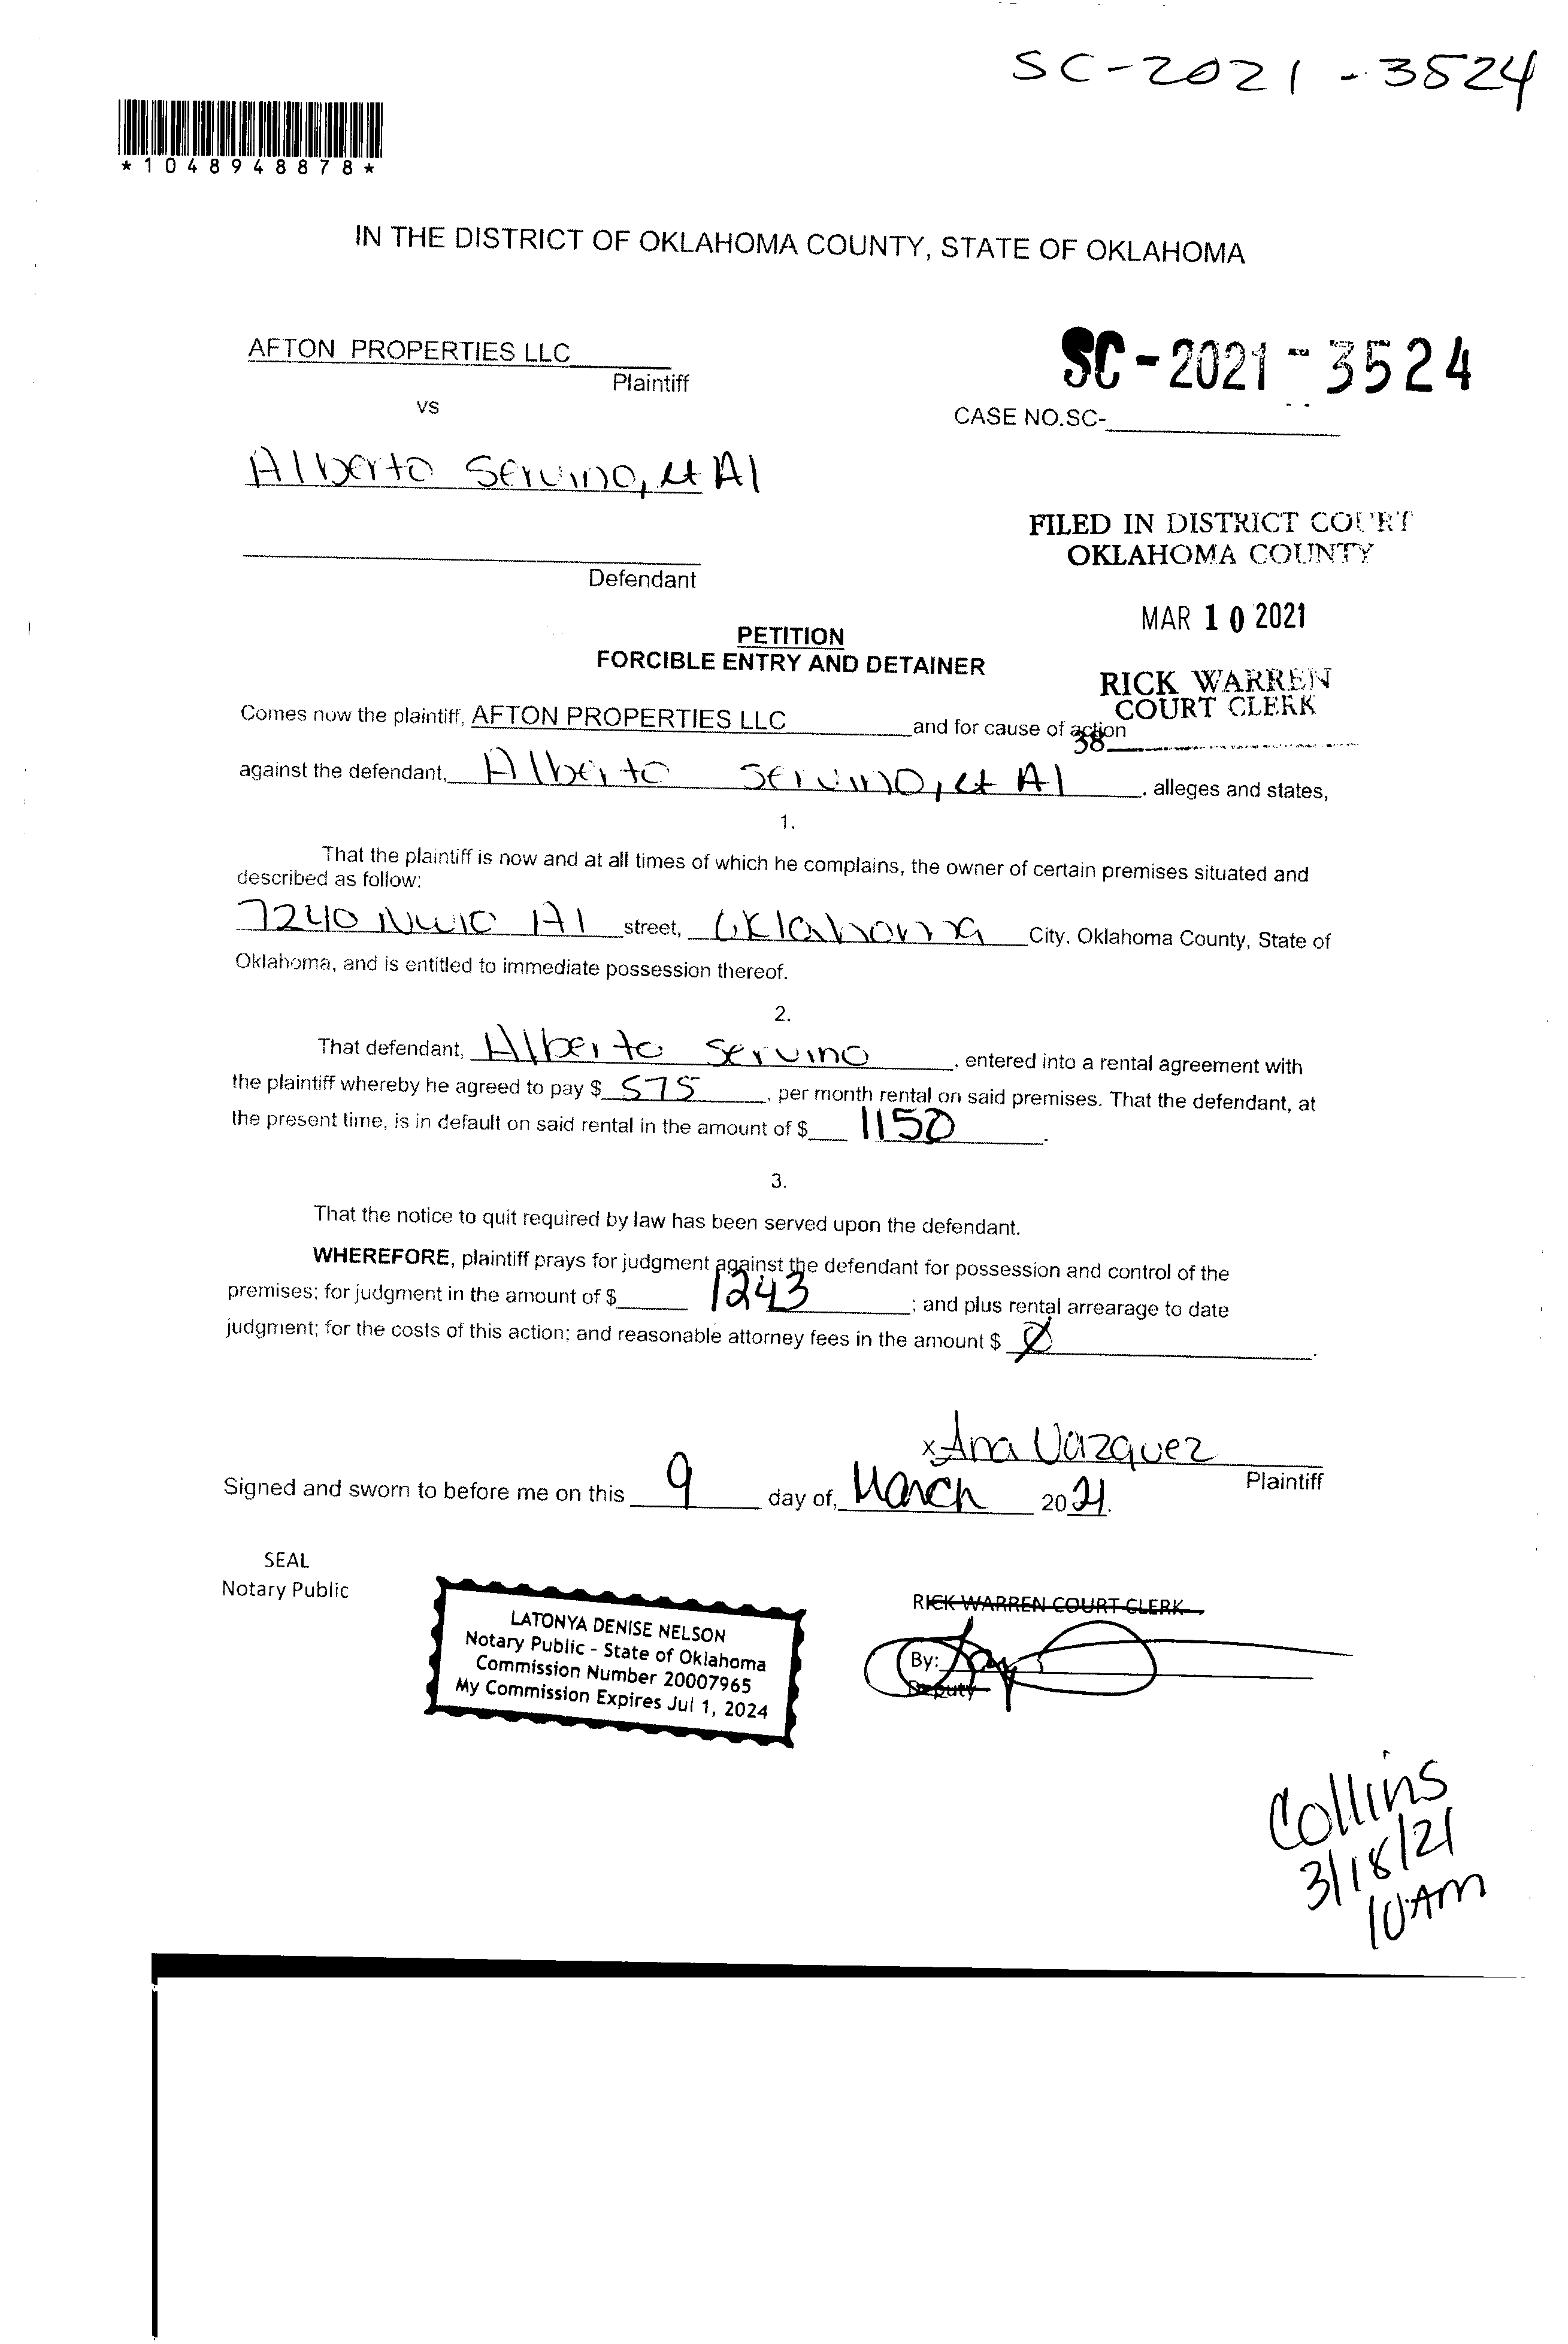 SC-2021-3524
*1048948878*
IN THE DISTRICT OF OKLAHOMA COUNTY, STATE OF OKLAHOMA
AFTON PROPERTIES LLC
Plaintiff
SC-2021-3524
vs
CASE NO.SC-
Alberto Servino, et Al
FILED IN DISTRICT COURT
OKLAHOMA COUNTY
Defendant
MAR 10 2021
PETITION
FORCIBLE ENTRY AND DETAINER
RICK WARREN
COURT CLERK
Comes now the plaintiff, AFTON PROPERTIES LLC and for cause of action
38
against the defendant, Alberto Servino, et Al, alleges and states,
1.
That the plaintiff is now and at all times of which he complains, the owner of certain premises situated and
described as follow:
7240 NW10 A1 street, Oklahoma City. Oklahoma County, State of
Oklahoma, and is entitled to immediate possession thereof.
2.
That defendant, Alberto Servino, entered into a rental agreement with
the plaintiff whereby he agreed to pay $ 575, per month rental on said premises. That the defendant, at
the present time, is in default on said rental in the amount of $ 1150.
3.
That the notice to quit required by law has been served upon the defendant.
WHEREFORE, plaintiff prays for judgment against the defendant for possession and control of the
premises; for judgment in the amount of $ 1243; and plus rental arrearage to date
judgment; for the costs of this action; and reasonable attorney fees in the amount $ 0.
x Ana Vazquez
Plaintiff
Signed and sworn to before me on this 9 day of, March 2021.
SEAL
Notary Public
LATONYA DENISE NELSON
Notary Public - State of Oklahoma
Commission Number 20007965
My Commission Expires Jul 1, 2024
RICK WARREN COURT CLERK
By:
Deputy
Collins
3/18/21
10AM